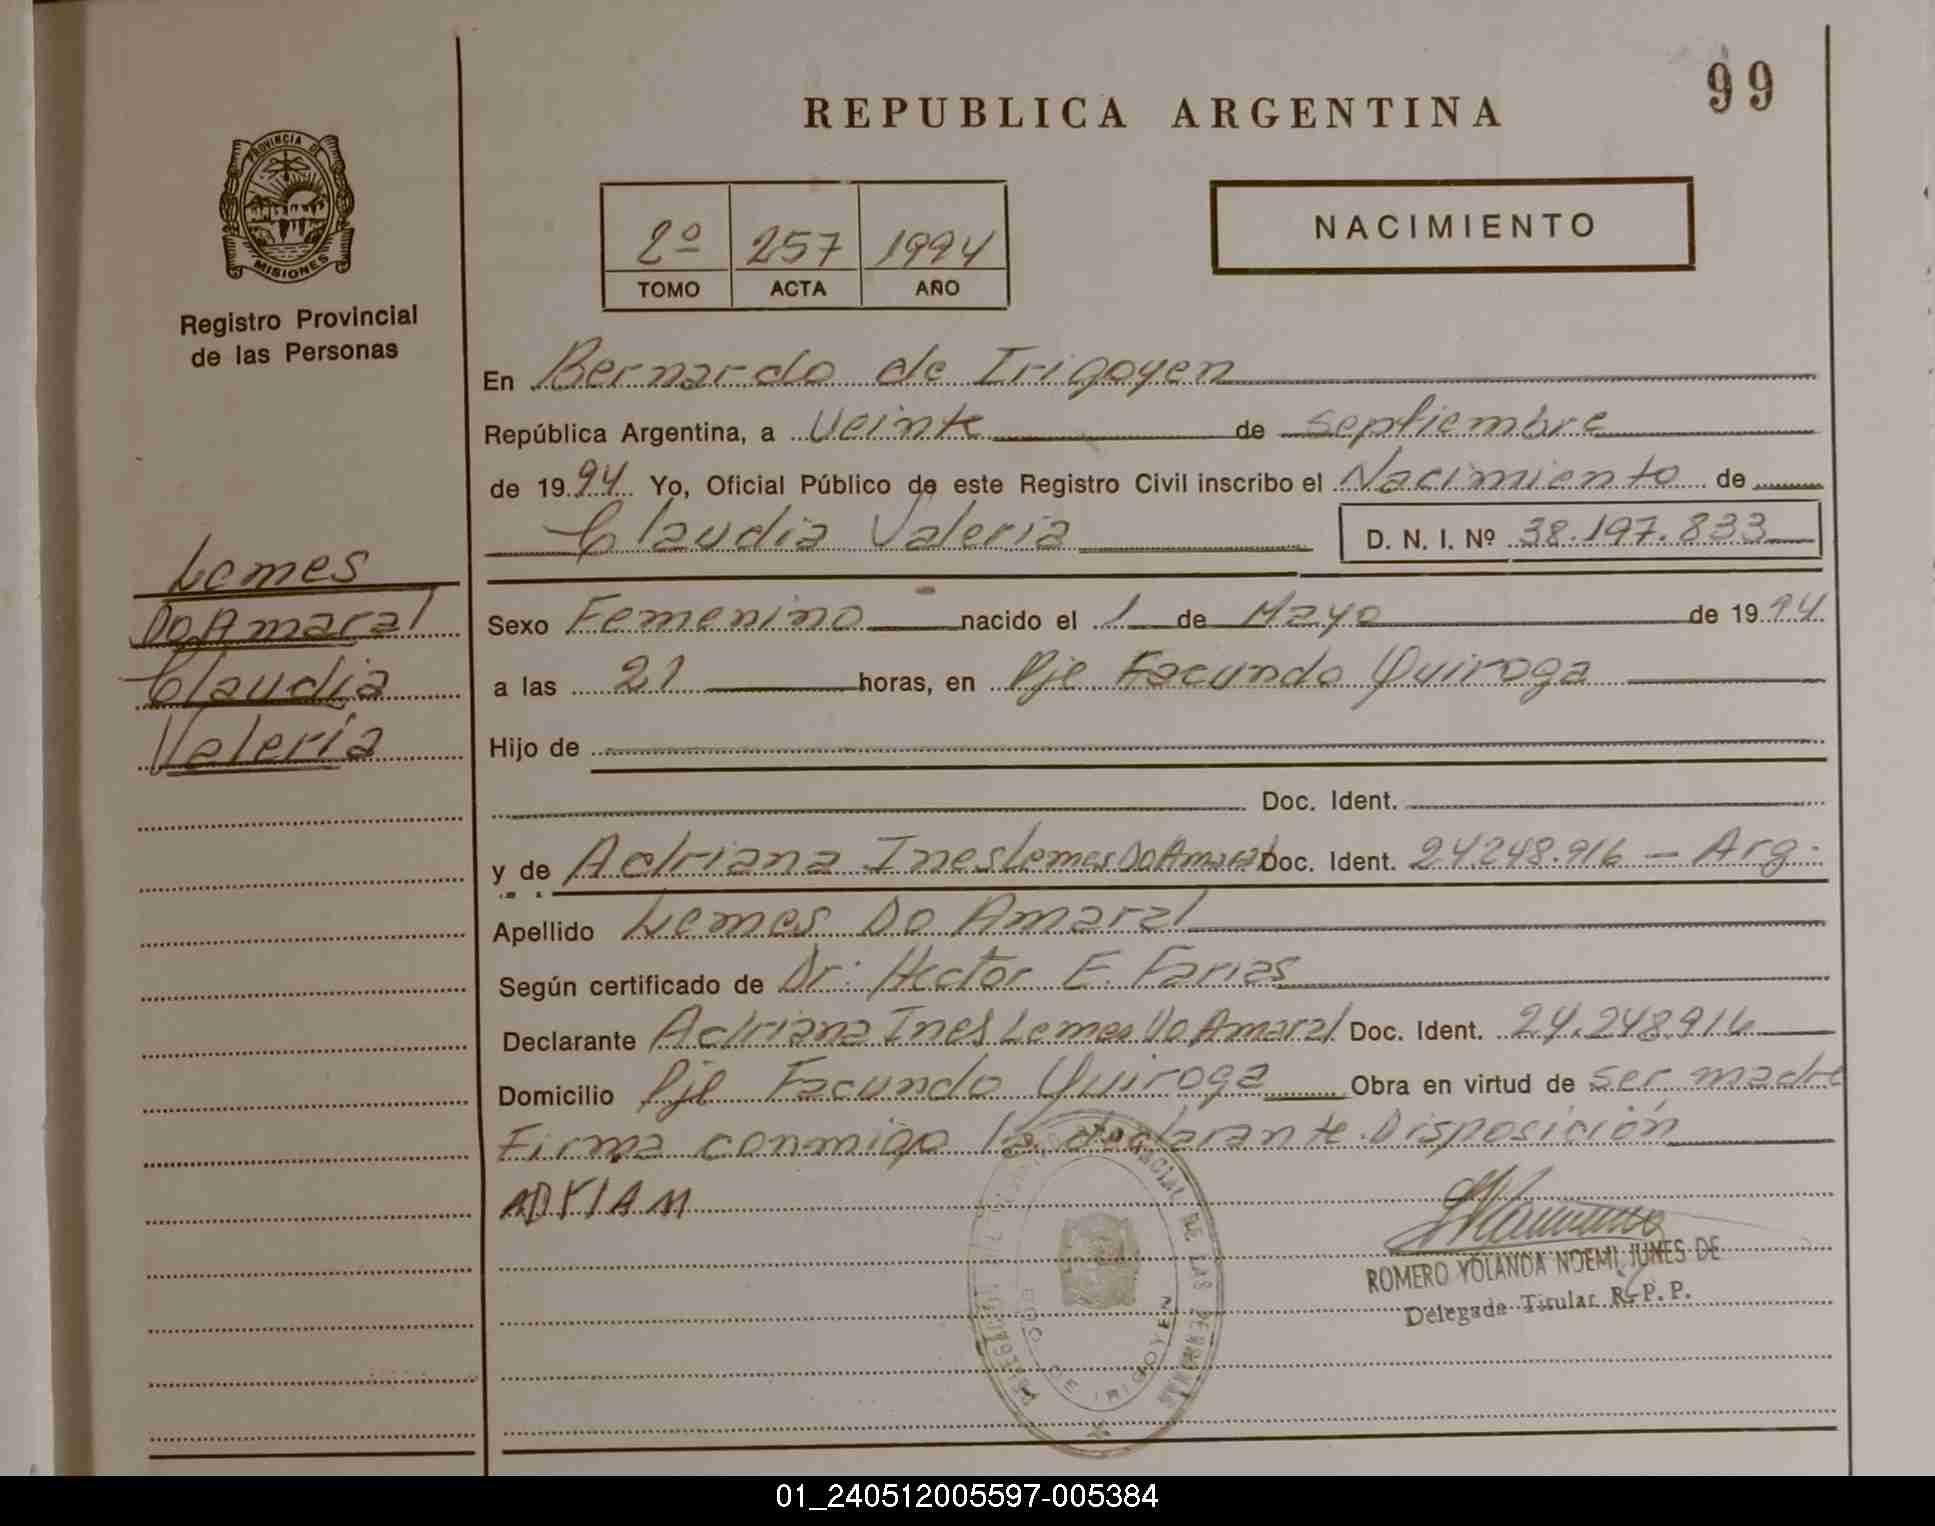 99
REPUBLICA ARGENTINA
PROVINCIA DE
MISIONES
Registro Provincial
de las Personas
NACIMIENTO
2º 257 1994
TOMO ACTA AÑO
En Bernardo de Irigoyen
República Argentina, a Veinte de septiembre
de 1994 Yo, Oficial Público de este Registro Civil inscribo el Nacimiento de
Claudia Valeria D. N. I. Nº 38.197.833
Lemes
Do Amaral
Claudia
Valeria
Sexo Femenino nacido el 1 de Mayo de 1994
a las 21 horas, en Pje Facundo Quiroga
Hijo de
Doc. Ident.
y de Adriana Ines Lemes Do Amaral Doc. Ident. 24248.916 - Arg.
Apellido Lemes Do Amaral
Según certificado de Dr: Hector E. Farias
Declarante Adriana Ines Lemes Do Amaral Doc. Ident. 24.248.916
Domicilio Pje Facundo Quiroga Obra en virtud de ser madre
Firma conmigo la declarante. Disposición
ADRIAN
DE LAS
DE IRIGOYEN
ROMERO YOLANDA NOEMI JUNES DE
Delegada Titular R. P. P.
01_240512005597-005384